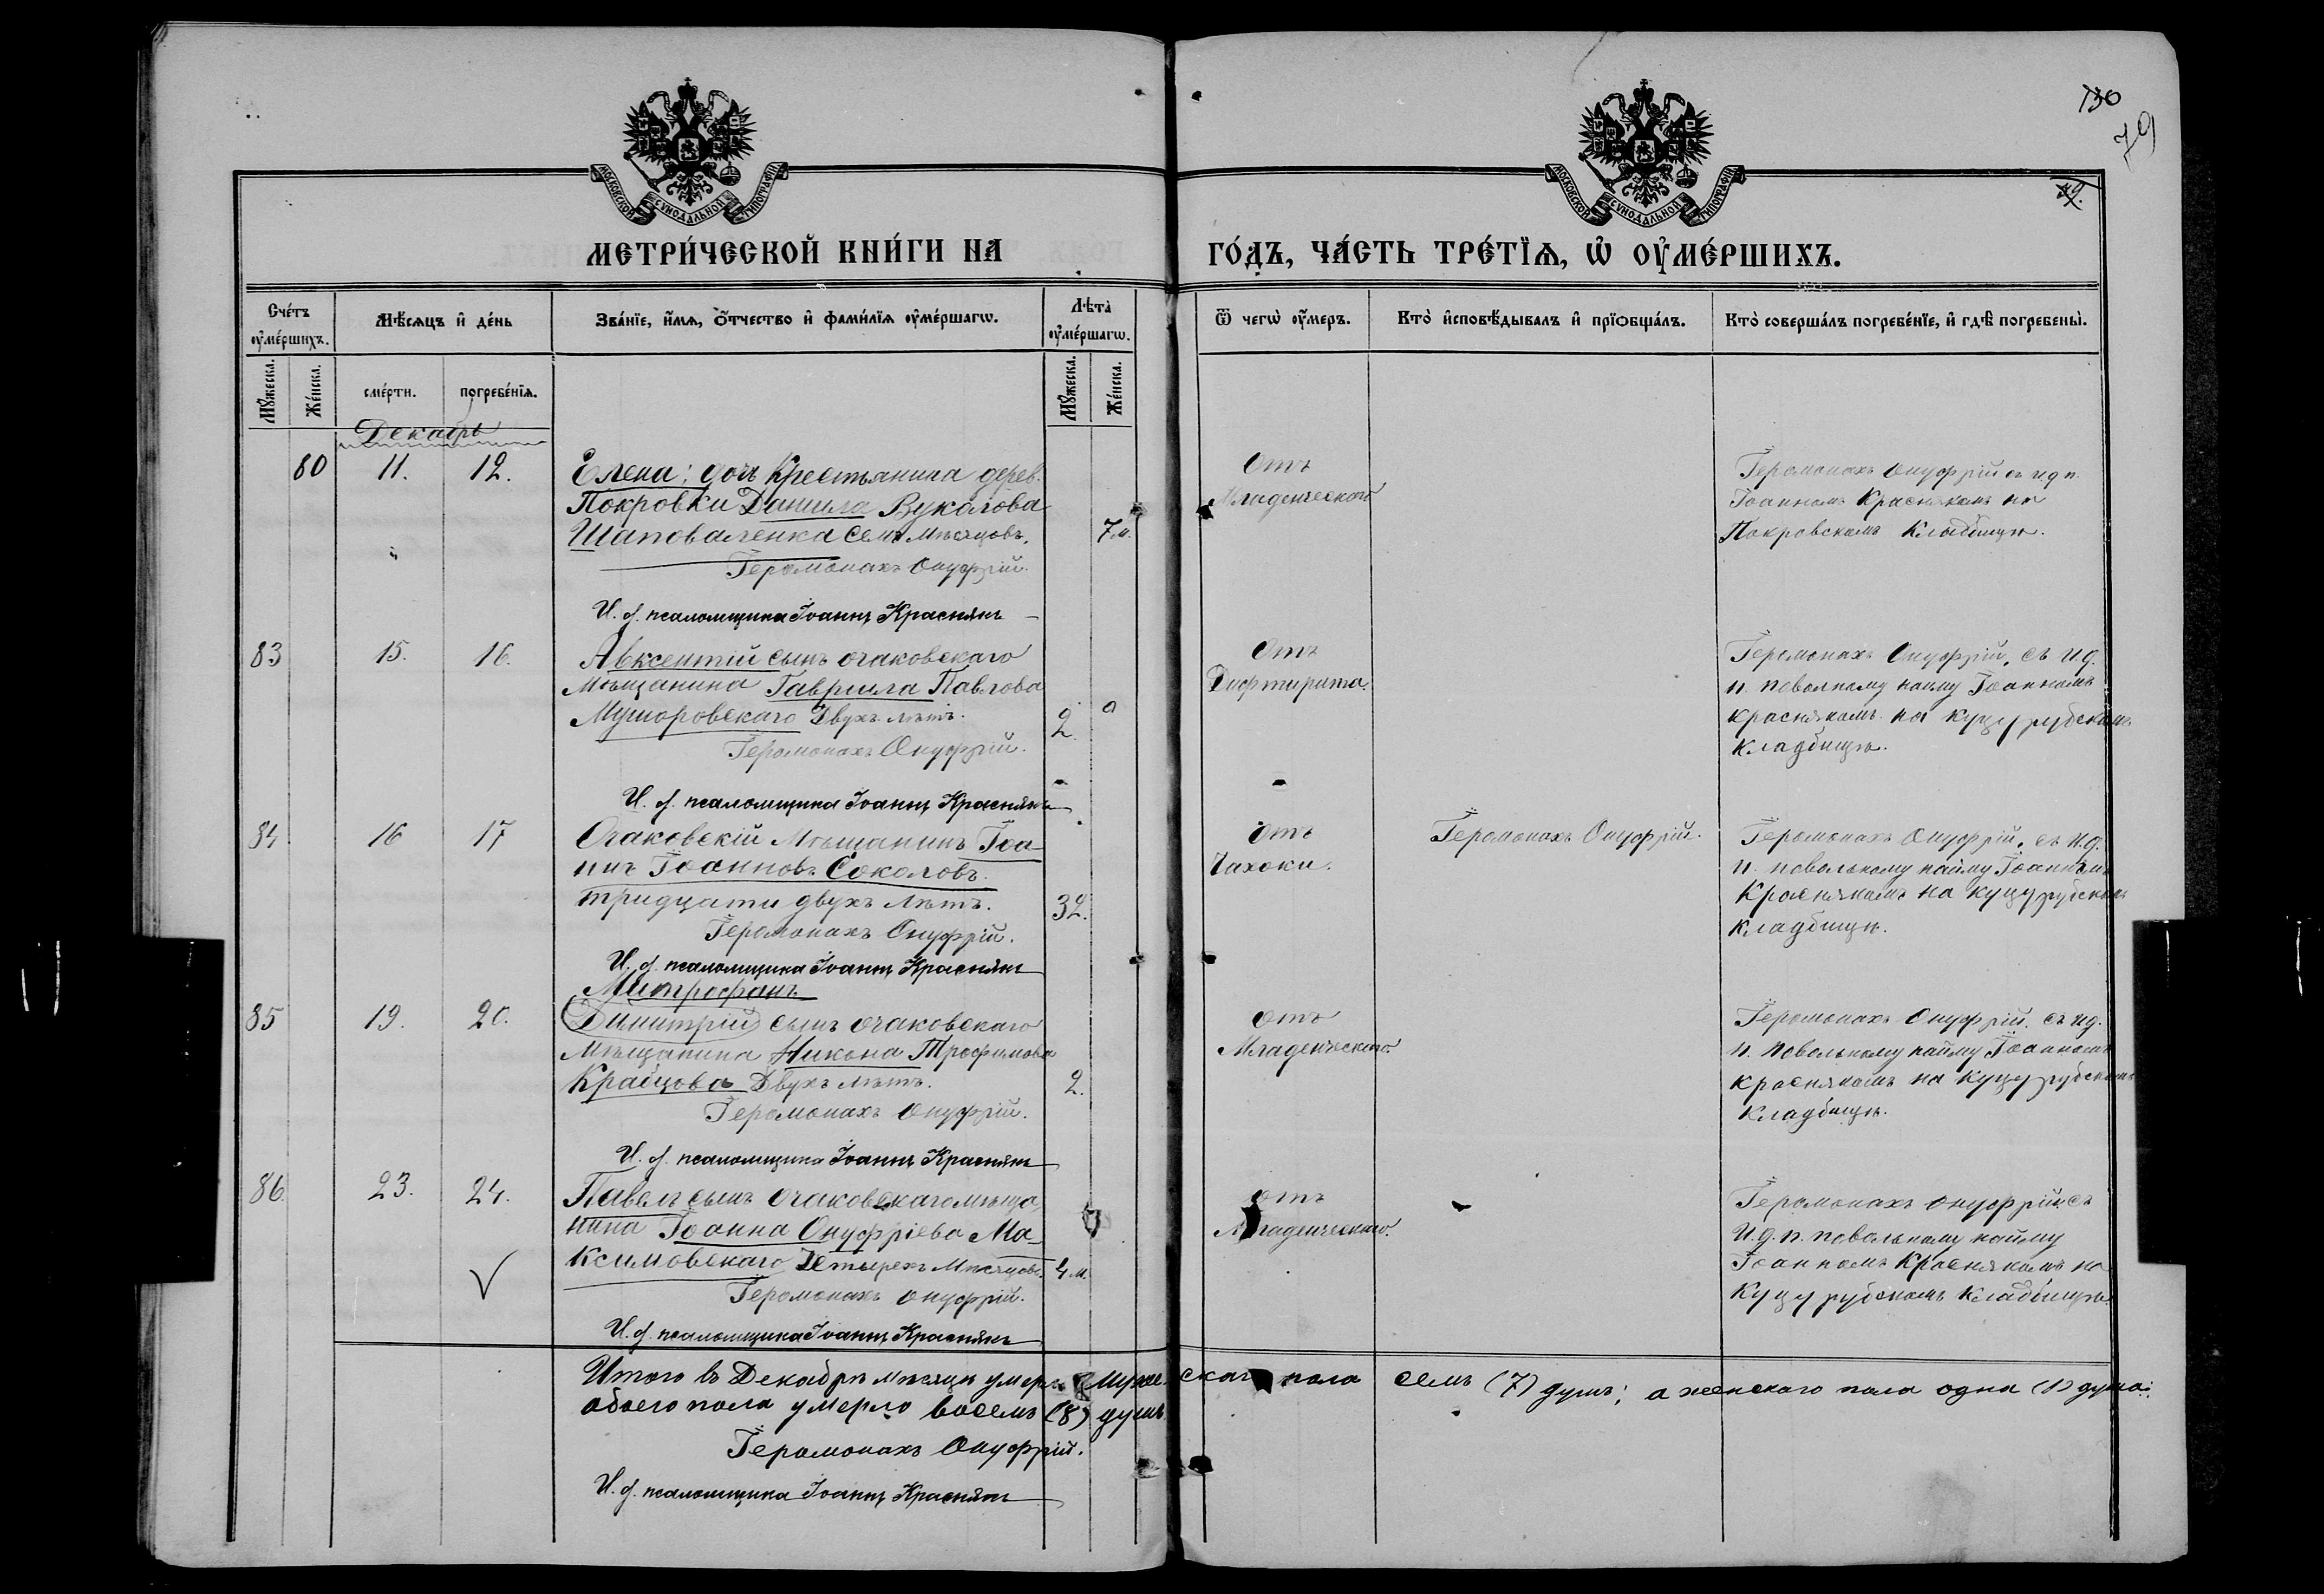 130
79
МОСКОВСКОЙ СѴНОДАЛЬНОЙ ТИПОГРАФІИ
МОСКОВСКОЙ СѴНОДАЛЬНОЙ ТИПОГРАФІИ
МЕТРИ́ЧЕСКОЙ КНИ́ГИ НА ГО́ДЪ, ЧА́СТЬ ТРЕ́ТЇѦ, Ѡ҆ ОУ҆МЕ́РШИХЪ.
Сче́тъ оу҆ме́ршихъ.
Мѣ́сѧцъ и҆ де́нь
Зва́нїе, и҆́мѧ, ѻ҆́тчество и҆ фамилїѧ оу҆ме́ршагѡ.
Лѣ́та оу҆ме́ршагѡ.
Ѿ чегѡ̀ оу҆́меръ.
Кто̀ и҆сповѣ́дывалъ и҆ прїѡбща́лъ.
Кто̀ соверша́лъ погребе́нїе, и҆ гдѣ̀ погребены̀.
Мꙋ́жеска.
Же́нска.
сме́рти.
погребе́нїѧ.
Мꙋ́жеска.
Же́нска.
Декабрь
80 11. 12. Елена: дочь Крестьянина дерев.
Покровки Данила Вукалова
Шаповаленка семь мѣсяцовъ. 7 м.
Іеромонахъ Онуфрій.
И. д. псаломщика Іоаннъ Краснякъ
Отъ
Младенческаго
Іеромонахъ Онуфрій съ и д п.
Іоанномъ Краснякомъ на
Покровскомъ Кладбищѣ.
83 15. 16. Авксентій сынъ очаковскаго
Мѣщанина Гавриила Павлова
Двухъ лѣтъ. 2.
Іеромонахъ Онуфрій.
И. д. псаломщика Іоаннъ Краснякъ
Отъ
Дифтирита.
Іеромонахъ Онуфрій, съ и.д.
п. поволному найму Іоанномъ
краснякомъ на Куцурубскомъ
Кладбищѣ.
84. 16 17 Очаковскій Мѣщанинъ Іоа
ннъ Іоанновъ Соколовъ.
тридцати двухъ лѣтъ. 32.
Іеромонахъ Онуфрій.
И. д. псаломщика Іоаннъ Краснякъ
Отъ
Чахоки.
Іеромонахъ Онуфрій.
Іеромонахъ Онуфрій, съ и.д.
п. повольному найму Іоанномъ
Краснякомъ на Куцурубскомъ
Кладбищѣ.
Митрофанъ
85 19. 20. (Димитрій) сынъ очаковскаго
Мѣщанина Никона Трофимова
Крайцова Двухъ лѣтъ. 2.
Іеромонахъ Онуфрій.
И. д. псаломщика Іоаннъ Краснякъ
отъ
Младенческаго.
Іеромонахъ Онуфрій. съ ид.
п. повольному найму Іоанномъ
краснякомъ на Куцурубскомъ
Кладбищѣ.
86. 23. 24. Павелъ сынъ очаковскаго мѣща
нина Іоанна Онуфріева Ма-
ксимовскаго Четырехъ Мѣсяцовъ. 4 м.
Іеромонахъ Онуфрій.
И. д. псаломщика Іоаннъ Краснякъ
отъ
Младенческаго.
Іеромонахъ Онуфрій съ
И.д.п. повольному найму
Іоанномъ Краснякомъ на
Куцурубскомъ Кладбищѣ.
Итого въ Декабрѣ мѣсяцѣ умерло мужескаго пола семь (7) душъ; а женскаго пола одна (1) душа;
обоего пола умерло восемь (8) душъ
Іеромонахъ Онуфрій.
И. д. псаломщика Іоаннъ Краснякъ